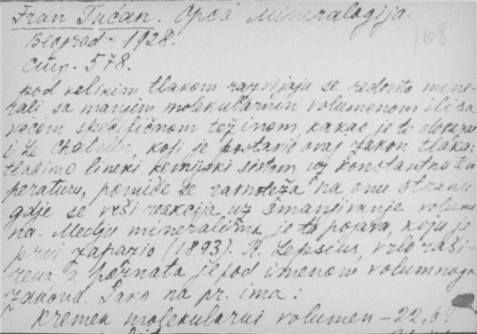 Fran Tućan. Opća Mineralogija.
Beograd - 1928.
108
Стр. 578.
Pod velikim tlakom razvijaju se redovito mine-
rali sa manjim molekularnim volumenom ili sa
većom specifičnom težinom, kakao je to
i Le Chatelier, koji je postavio ovaj zakon tlaka:
tlačimo li neki kemijski sistem uz konstantnu tem
peraturu, pomiče se ravnoteža na onu stranu
gdje se vrši reakcija uz smanjivanje volume
na. Medju mineralima je ta pojava, koju je
prvi zapazio (1893). R. Lepsius, vrlo raši-
rena a poznata je pod imenom volumnoga
zakona. Tako na pr. ima:
Kremen molekularni volumen - 22,64